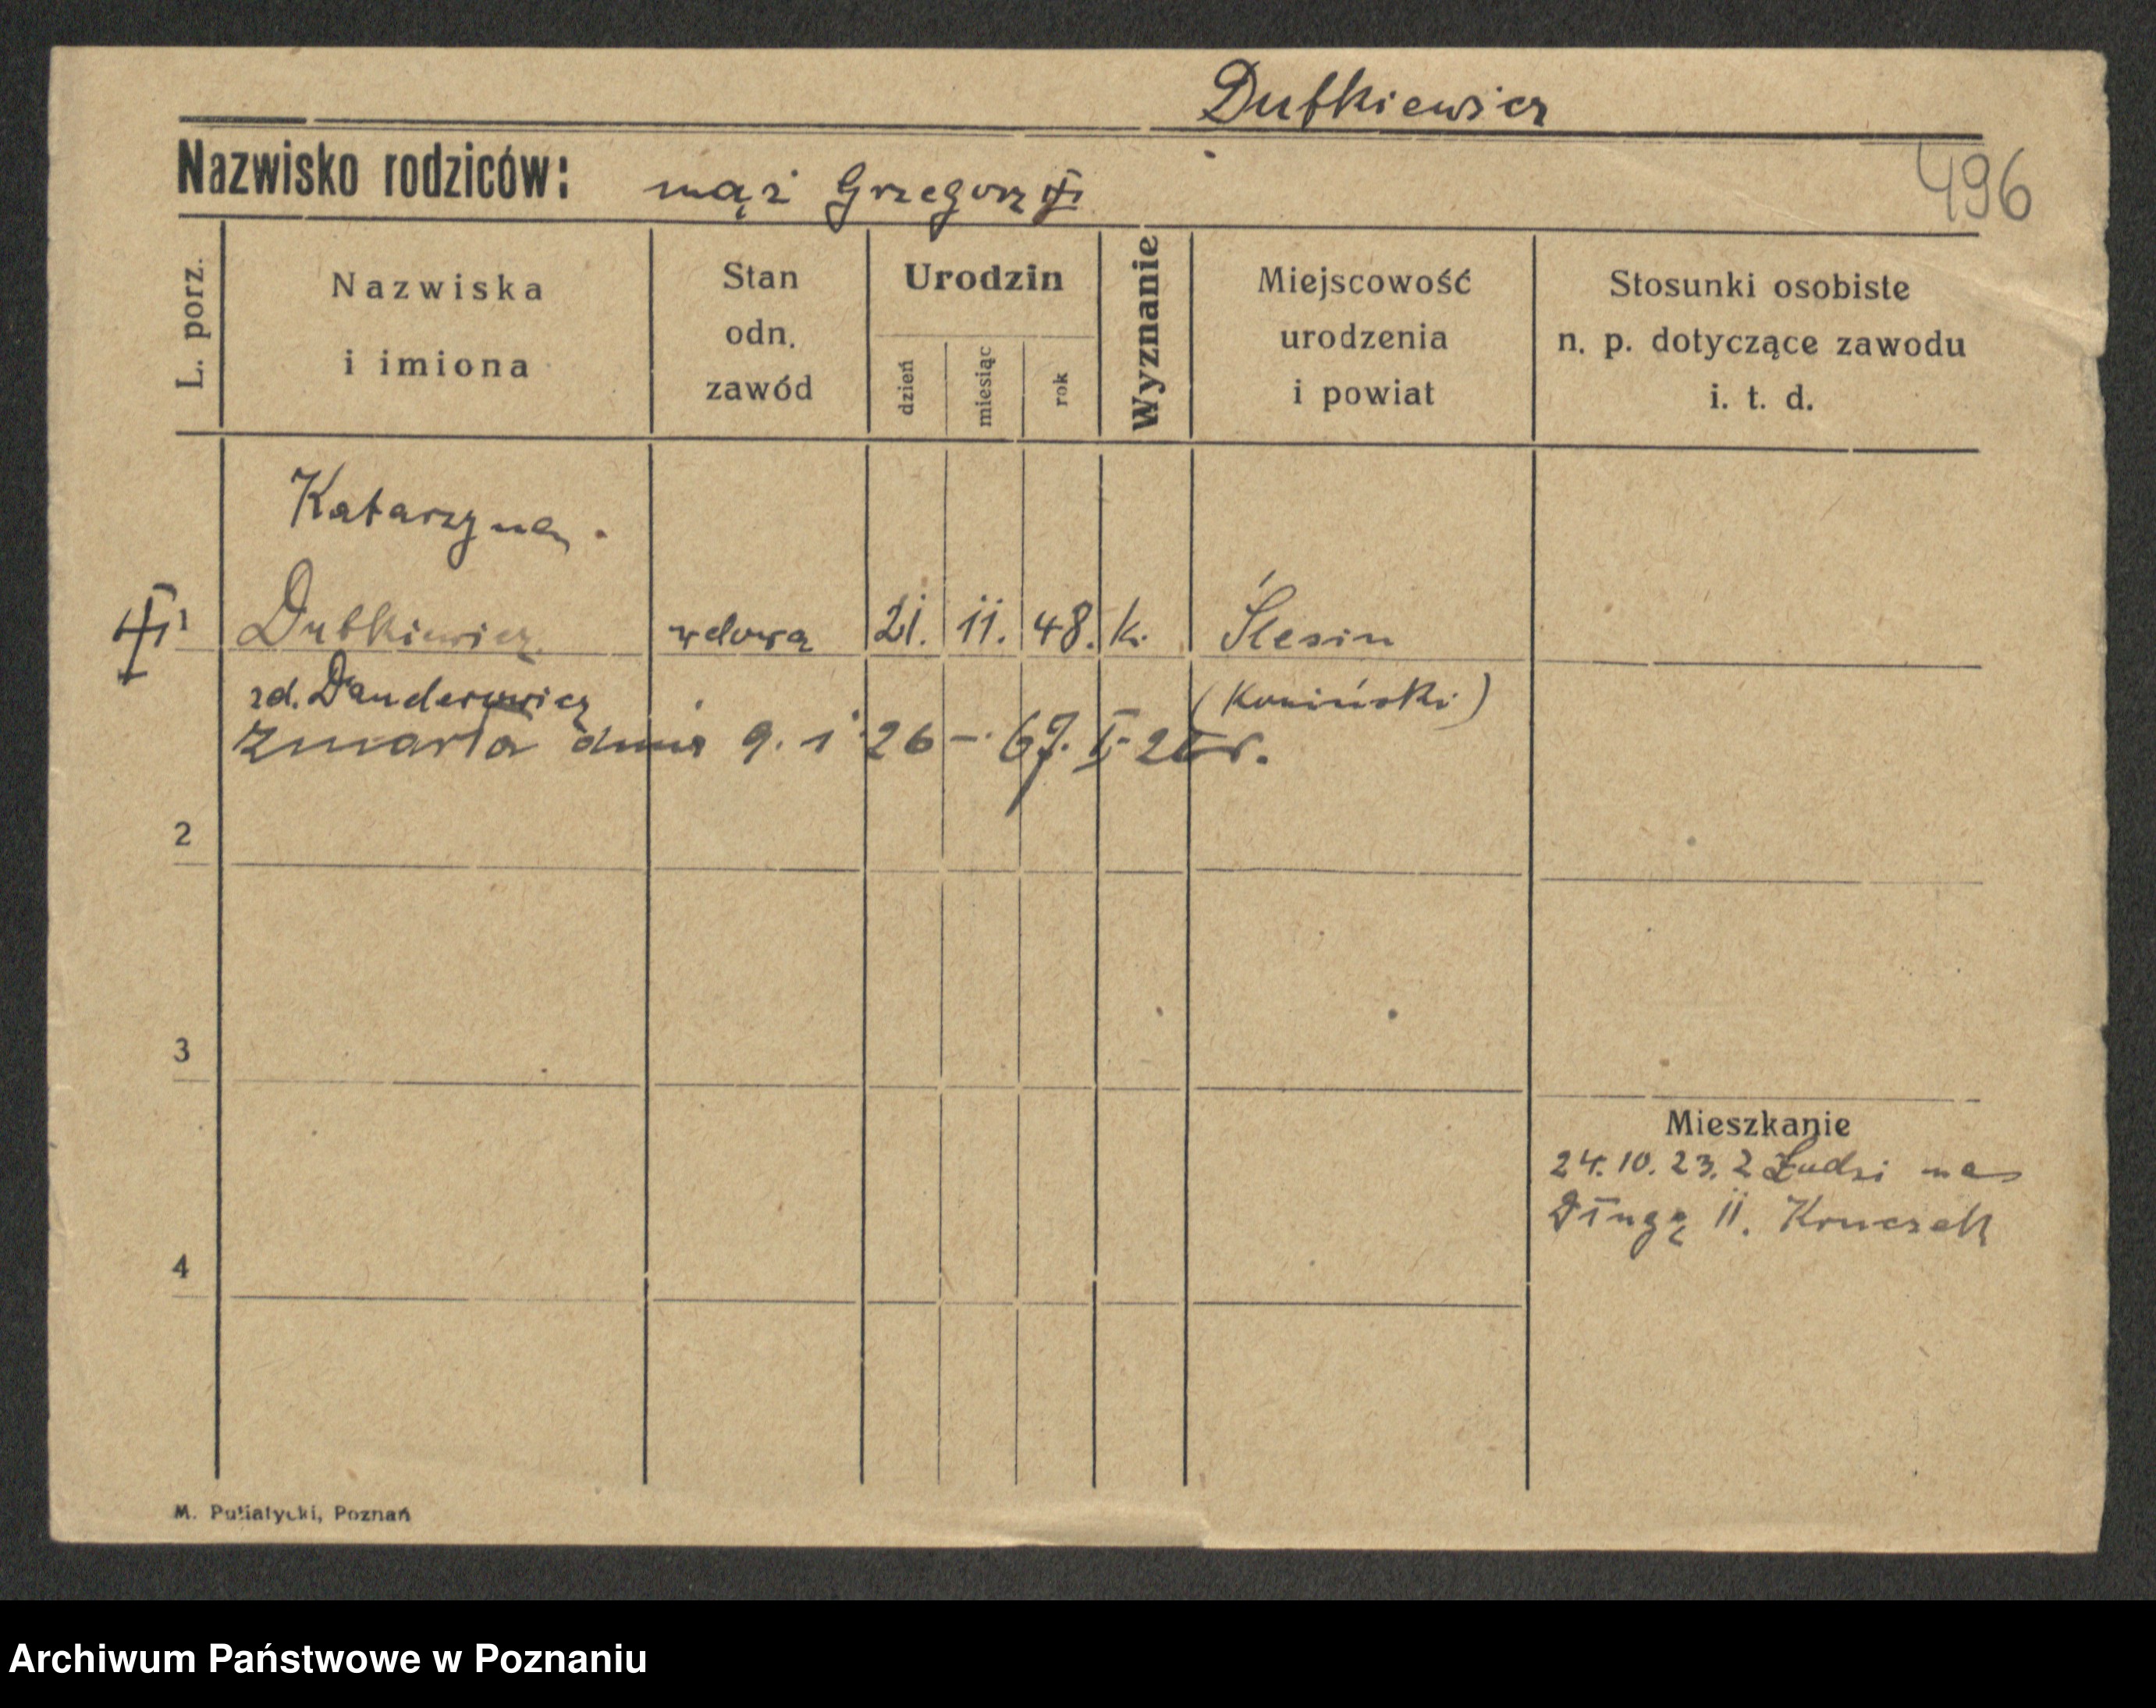 Dutkiewicz
Nazwisko rodziców: mąż Grzegorz
496
L. porz.
Nazwiska
i imiona
Stan
odn.
zawód
Urodzin
dzień
miesiąc
rok
Wyznanie
Miejscowość
urodzenia
i powiat
Stosunki osobiste
n. p. dotyczące zawodu
i. t. d.
Katarzyna
1 Dutkiewicz wdowa 21. 11. 48. k. Ślesin
zd. (Koniński)
Zmarła dnia 9. 1 26
2
3
4
Mieszkanie
24.10.23. z Łodzi na
Długą 11.
M. Putiatycki, Poznań
Archiwum Państwowe w Poznaniu